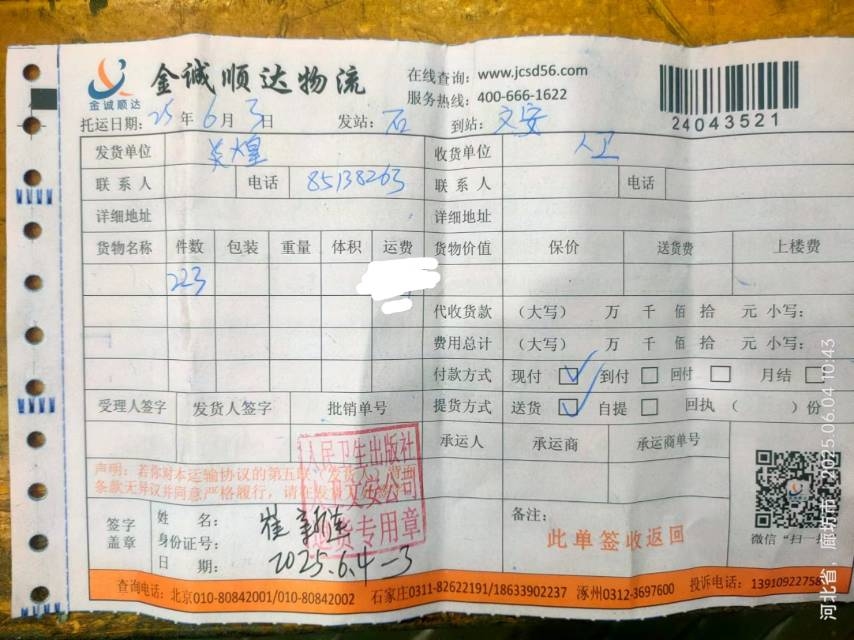 金诚顺达
金诚顺达物流
在线查询：www.jcsd56.com
服务热线：400-666-1622
24043521
托运日期：25年6月3日 发站：石 到站：文安
发货单位 英煌 收货单位 人卫
联系人 电话 85138263 联系人 电话
详细地址 详细地址
货物名称 件数 包装 重量 体积 运费 货物价值 保价 送货费 上楼费
223
代收货款 （大写） 万 千 佰 拾 元 小写：
费用总计 （大写） 万 千 佰 拾 元 小写：
付款方式 现付 到付 回付 月结
提货方式 送货 自提 回执（ ）份
受理人签字 发货人签字 批销单号 承运人 承运商 承运商单号
声明：若你对本运输协议的第五联“发货人
条款无异议并同意严格履行，请在发货
人民卫生出版社
文安公司
货专用章
签字
盖章
姓名：崔
身份证号：
日期：2025.6.4-3
备注：
此单签收返回
微信“扫一扫
查询电话：北京010-80842001/010-80842002 石家庄0311-82622191/18633902237 涿州0312-3697600 投诉电话：1391092275
河北省，廊坊市，2025.06.04 10:43